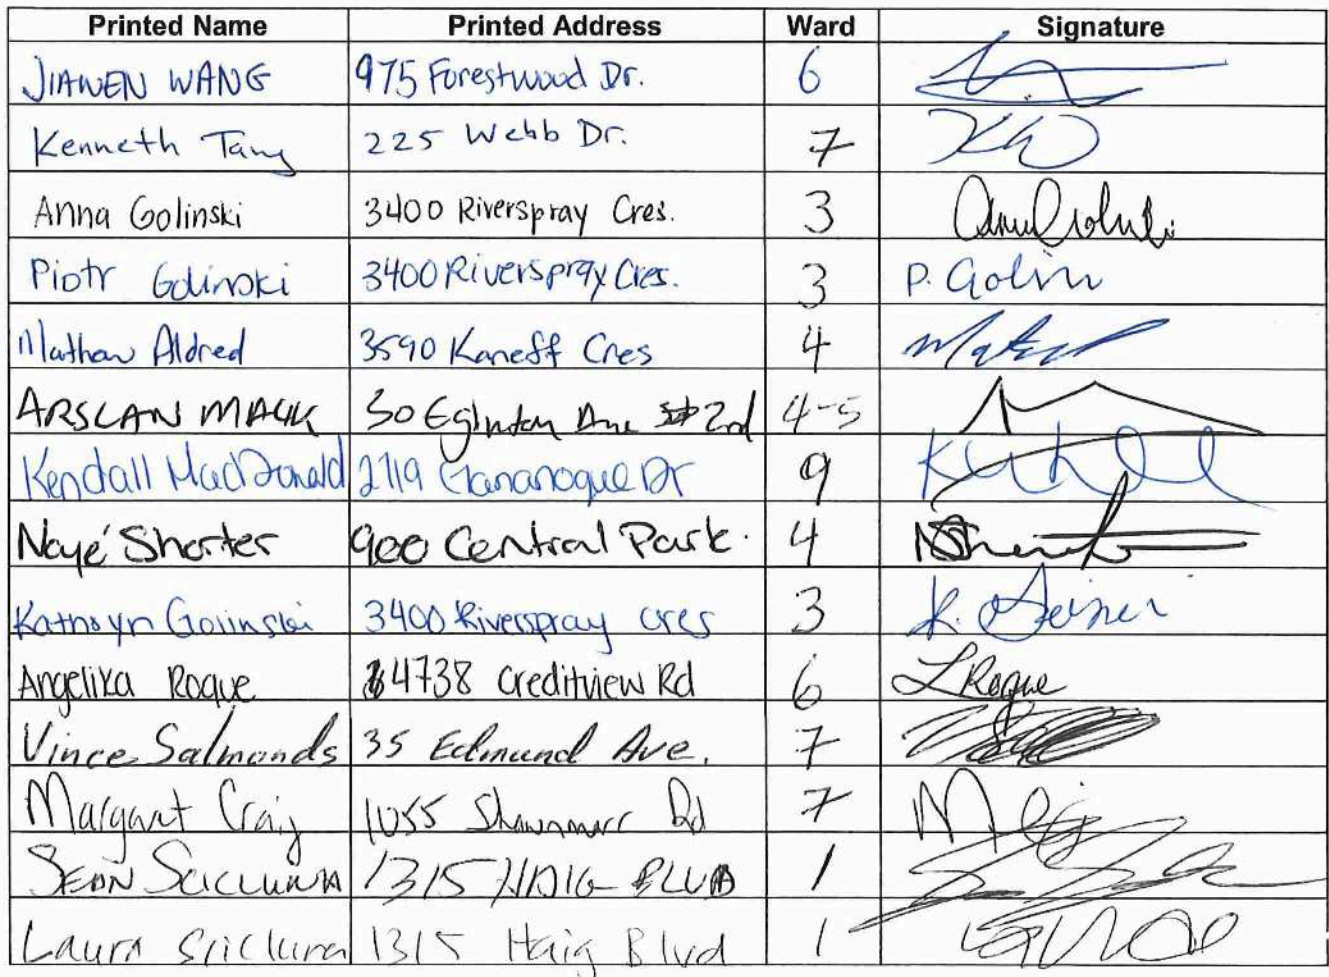 Printed Name Printed Address Ward Signature
JIAWEN WANG 975 Forestwood Dr. 6
Kenneth Tang 225 Webb Dr. 7
Anna Golinski 3400 Riverspray Cres. 3
Piotr Golinski 3400 Riverspray Cres. 3 P. Golin
Mathew Aldred 3590 Kaneff Cres 4
ARSLAN MALIK 30 Eglinton Ave 2nd 4-5
Kendall MacDonald 2719 Gananoque Dr 9
Nayé Shorter 900 Central Park. 4
Kathryn Golinski 3400 Riverspray cres 3 K.
Angelika Roque 4738 Creditview Rd 6 L Roque
Vince Salmonds 35 Edmund Ave. 7
Margaret Craig 1055 Shawnmarr Rd 7
SEAN SCICLUNA 1315 HAIG BLVD 1
Laura Scicluna 1315 Haig Blvd 1